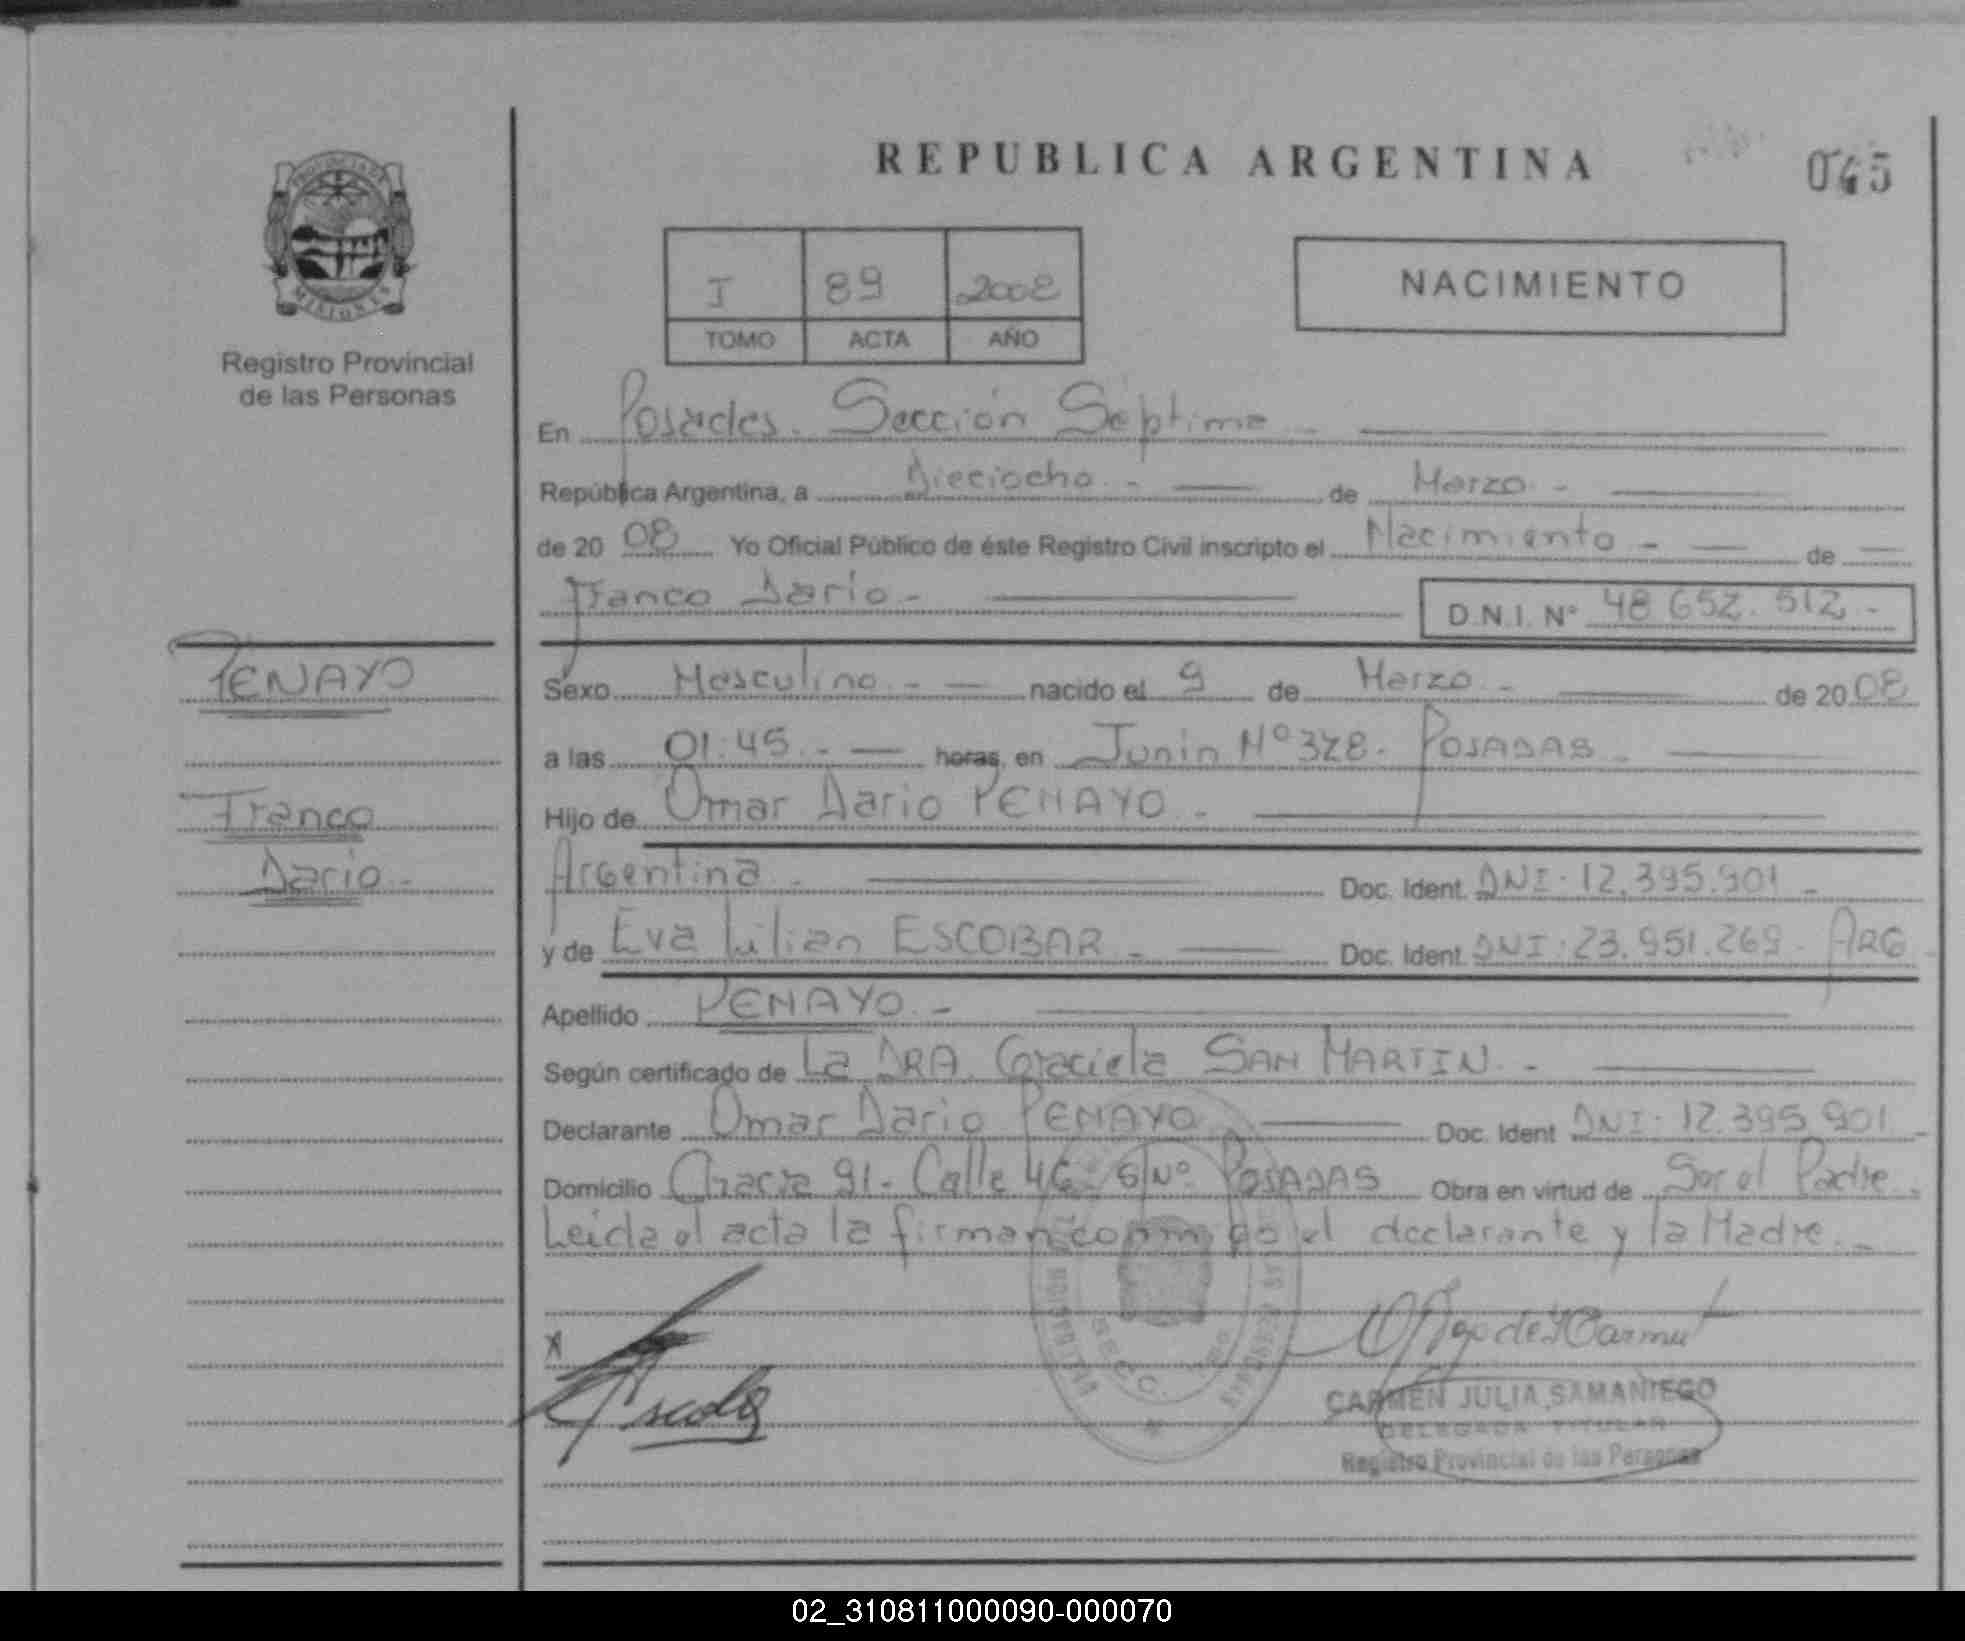 REPUBLICA ARGENTINA
045
PROVINCIA DE
MISIONES
Registro Provincial
de las Personas
I 89 2008
TOMO ACTA AÑO
NACIMIENTO
En Posadas. Sección Séptima
República Argentina, a Dieciocho.- de Marzo.-
de 2008 Yo Oficial Público de éste Registro Civil inscripto el Nacimiento - de
Franco Dario.- D.N.I. Nº 48.652.512.-
PENAYO
Franco
Dario.-
Sexo Masculino.- nacido el 9 de Marzo.- de 2008
a las 01:45.- horas, en Junin Nº 328. POSADAS.-
Hijo de Omar Dario PENAYO.-
Argentina.- Doc. Ident. DNI: 12.395.901.-
y de Eva Lilian ESCOBAR.- Doc. Ident. DNI: 23.951.269. ARG.
Apellido PENAYO.-
Según certificado de La DRA. Graciela SAN MARTIN.-
Declarante Omar Dario PENAYO Doc. Ident DNI: 12.395.901.-
Domicilio Chacra 91- Calle 46 S/Nº POSADAS Obra en virtud de Ser el Padre.
Leida el acta la firman conmigo el declarante y la Madre.-
X
CARMEN JULIA SAMANIEGO
DELEGADA TITULAR
Registro Provincial de las Personas
02_310811000090-000070